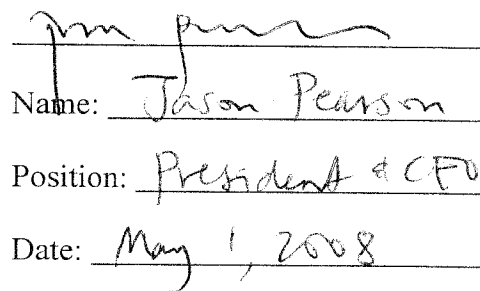 Name: Jason Pearson
Position: President & CFO
Date: May 1, 2008